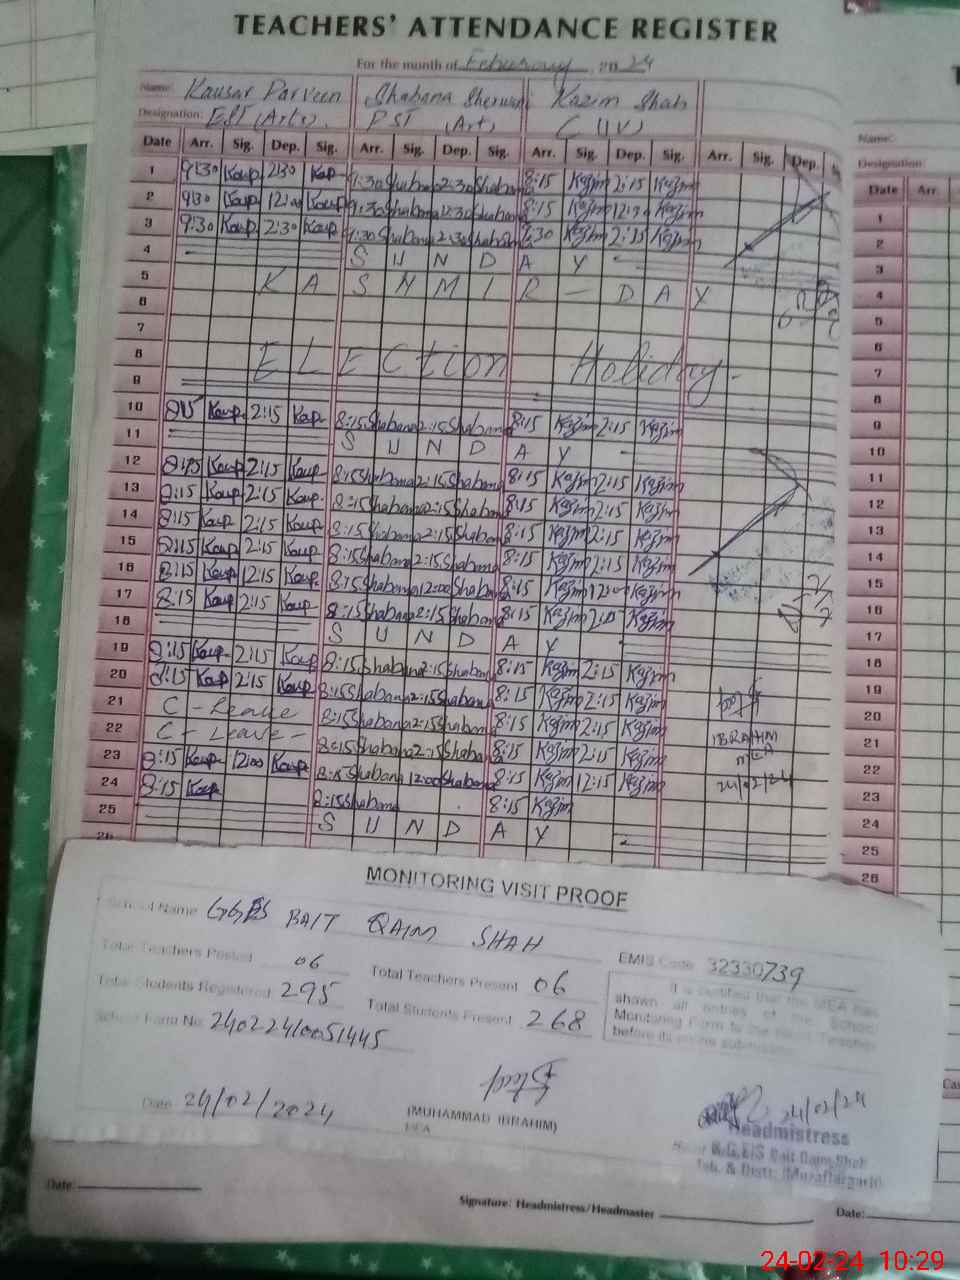 TEACHERS' ATTENDANCE REGISTER
For the month of February 2024
Name: Kausar Parveen Shabana Sherwani Kazim Shah
Designation: EST (Arts). PST (Art) C (IV)
Date Arr. Sig. Dep. Sig. Arr. Sig. Dep. Sig. Arr. Sig. Dep. Sig. Arr. Sig. Dep.
1 9:30 Kaup 2:30 Kap 9:30 Shabana 2:30 Shabana 8:15 Kazim 2:15 Kazim
2 9:30 Kaup 12:00 Kaup 9:30 Shabana 12:30 Shabana 8:15 Kazim 12:30 Kazim
3 9:30 Kaup 2:30 Kaup 9:30 Shabana 2:30 Shabana 7:30 Kazim 2:35 Kazim
4 S U N D A Y
5 K A S H M I R - D A Y
6
7
8 ELECtion Holiday-
9
10 8:15 Kaup 2:15 Kap 8:15 Shabana 2:15 Shabana 8:15 Kazim 2:15 Kazim
11 S U N D A Y
12 8:15 Kaup 2:15 Kaup 8:15 Shabana 2:15 Shabana 8:15 Kazim 2:15 Kazim
13 8:15 Kaup 2:15 Kaup 8:15 Shabana 2:15 Shabana 8:15 Kazim 2:15 Kazim
14 8:15 Kaup 2:15 Kaup 8:15 Shabana 2:15 Shabana 8:15 Kazim 2:15 Kazim
15 8:15 Kaup 2:15 Kaup 8:15 Shabana 2:15 Shabana 8:15 Kazim 2:15 Kazim
16 8:15 Kaup 12:15 Kaup 8:15 Shabana 12:00 Shabana 8:15 Kazim 12:00 Kazim
17 8:15 Kaup 2:15 Kaup 8:15 Shabana 2:15 Shabana 8:15 Kazim 2:15 Kazim
18 S U N D A Y
19 8:15 Kaup 2:15 Kaup 8:15 Shabana 2:15 Shabana 8:15 Kazim 2:15 Kazim
20 8:15 Kaup 2:15 Kaup 8:15 Shabana 2:15 Shabana 8:15 Kazim 2:15 Kazim
21 C - Leave 8:15 Shabana 2:15 Shabana 8:15 Kazim 2:15 Kazim
22 C - Leave - 8:15 Shabana 2:15 Shabana 8:15 Kazim 2:15 Kazim
23 8:15 Kaup 12:00 Kaup 8:15 Shabana 12:00 Shabana 8:15 Kazim 12:15 Kazim
24 8:15 Kaup 8:15 Shabana 8:15 Kazim
25 S U N D A Y
26
IBRAHIM
MEA
24/02/24
Name:
Designation:
Date Arr
1
2
3
4
5
6
7
8
9
10
11
12
13
14
15
16
17
18
19
20
21
22
23
24
25
26
MONITORING VISIT PROOF
School Name GGES BAIT QAIM SHAH
EMIS Code 32330739
Total Teachers Posted 06 Total Teachers Present 06
Total Students Registered 295 Total Students Present 268
School Form No. 24022410051445
It is certified that the MEA has
shown all entries of the School
Monitoring Form to the Head Teacher
before its online submission.
Date 24/02/2024
(MUHAMMAD IBRAHIM)
MEA
24/02/24
Headmistress
Govt. G.E/S Bait Qaim Shah
Teh. & Distt: (Muzaffargarh)
Date:
Signature: Headmistress/Headmaster
Date:
24-02-24 10:29